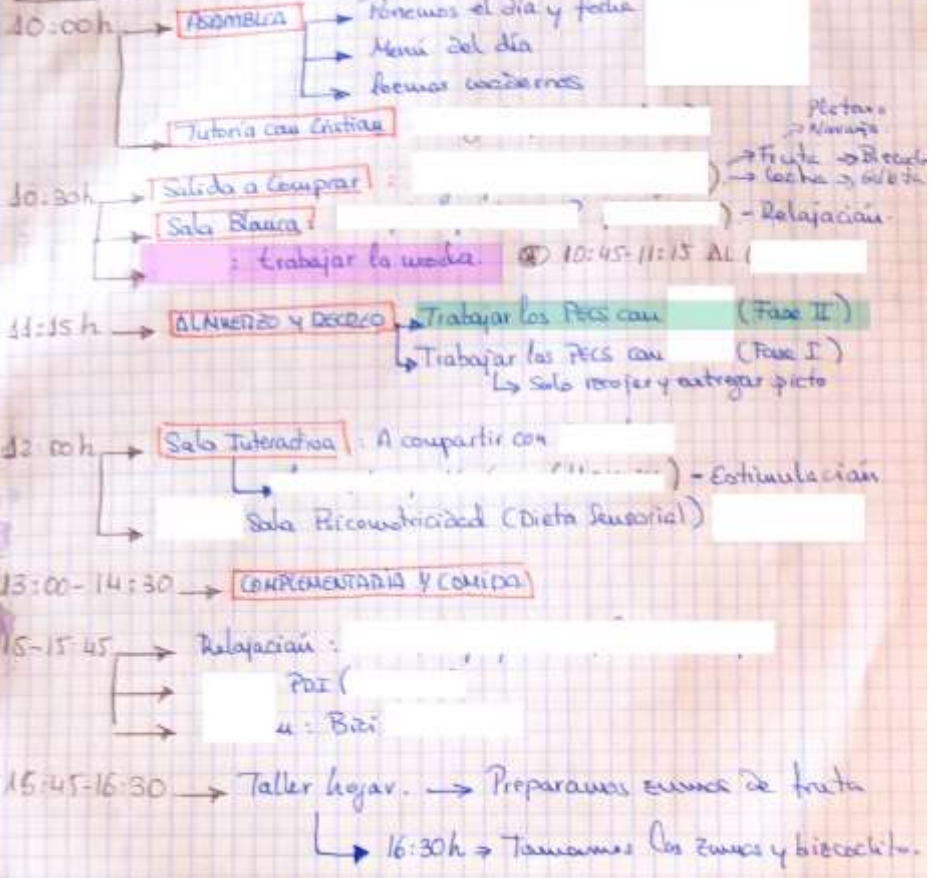 10:00h → ASAMBLEA → Ponemos el día y fecha
→ Menú del día
→ Poemas modernos
→ Tutoría con Cristian
Platano
→ Naranja
10:30h → Salida a Comprar : → Fruta →
→ Leche →
→ Sala Blanca : ) - Relajación.
→ : trabajar la 10:45-11:15 AL (
11:15h → ALMUERZO Y RECREO → Trabajar los PECS con (Fase II)
→ Trabajar los PECS con (Fase I)
↳ Solo recojer y entregar picto
12:00h → Sala Interactiva : A compartir con
→ ) - Estimulación
→ Sala Psicomotricidad (Dieta Sensorial)
13:00-14:30 → COMPLEMENTARIA Y COMIDA
15-15:45 → Relajación :
→ PDI (
→ : Bizi
15:45-16:30 → Taller hogar. → Preparamos zumos de fruta
→ 16:30h ⇒ Tomamos los zumos y bizcochito.